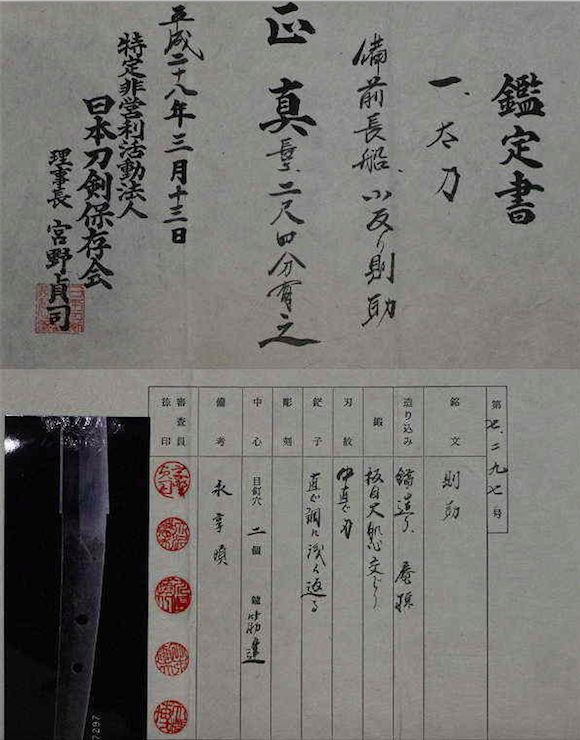 鑑定書
一、太刀
備前長船、小反り則助
正真 長、二尺四分有之
平成二十八年三月十三日
特定非営利活動法人
日本刀剣保存会
理事長 宮野貞司
第七、二九七号
銘文 則助
造り込み 鎬造り、庵棟
鍛 板目大肌心交じり
刃紋 中直ぐ刃
鋩子 直ぐ調に浅く返る
彫刻
中心 目釘穴 二個 鑢 筋違
備考 永享頃
審査員 捺印
7297